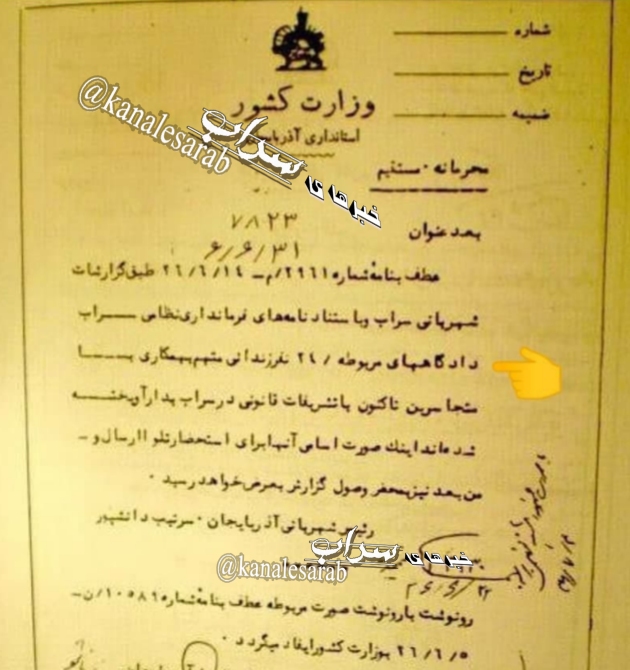 شماره
تاریخ
ضمیمه
وزارت کشور
استانداری
محرمانه - مستقیم
@kanalesarab
خبرهای سراب
بعد عنوان
۷۸۲۳
۶/۶/۳۱
عطف بنامهٔ شماره ۲۹۶۱/م - ۲۶/۶/۱۴ طبق گزارشات
شهربانی سراب و باستناد نامه‌های فرمانداری نظامی سراب
دادگاههای مربوطه / ۲۴ نفر زندانی متهم بهمکاری با
متجاسرین تاکنون با تشریفات قانونی در سراب بدار آویخته
شده‌اند اینک صورت اسامی آنها برای استحضار تلوا ارسال و -
من بعد نیز بمحض وصول گزارش بعرض خواهد رسید ۰
رئیس شهربانی آذربایجان - سرتیپ دانشپور
خبرهای سراب
@kanalesarab
رونوشت با رونوشت صورت مربوطه عطف بنامهٔ شماره ۱۰۵۸۹/ن -
۲۶/۶/۵ بوزارت کشور ایفاد میگردد ۰